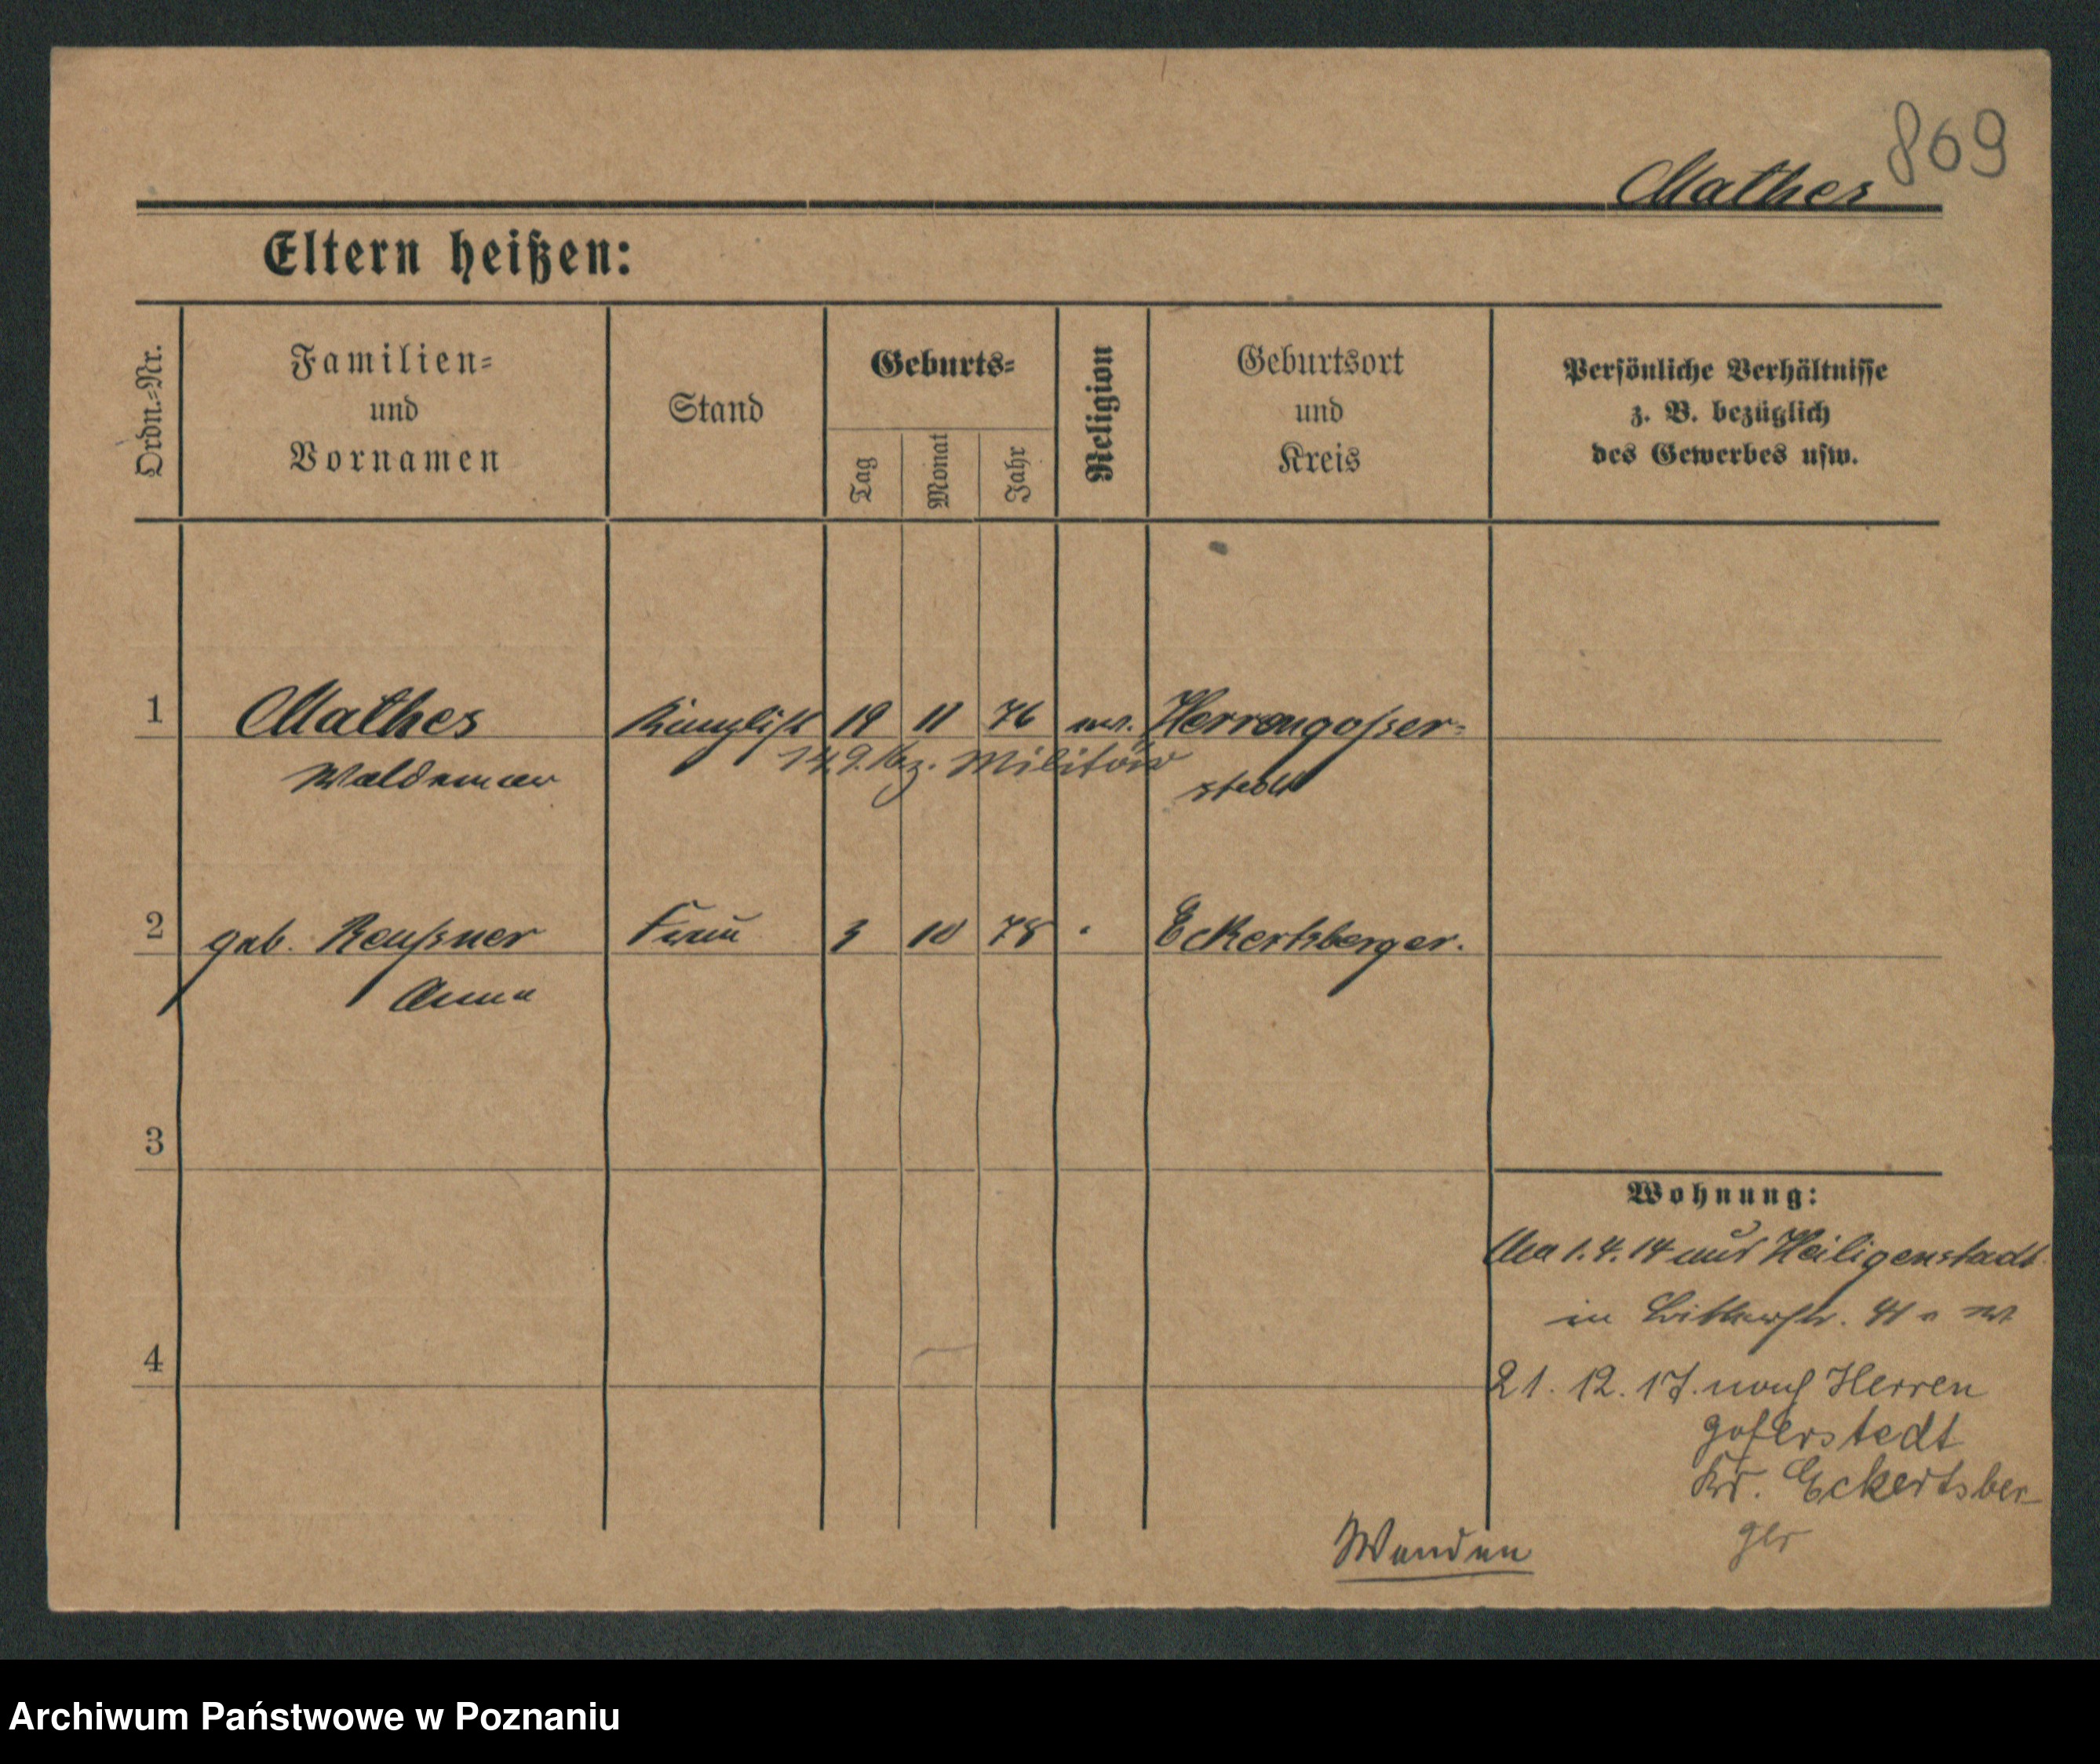 869
Mathes
Eltern heißen:
Ordn.-Nr.
Familien-
und
Vornamen
Stand
Geburts-
Tag
Monat
Jahr
Religion
Geburtsort
und
Kreis
Persönliche Verhältnisse
z. B. bezüglich
des Gewerbes usw.
1 Mathes Kanzlist 19 11 76 ev. Herrengosser-
149. Militär
Waldemar stedt
2 geb. Reußner Frau 3 10 78 " Eckertsberger.
Anna
3
Wohnung:
1.4.14 aus Heiligenstadt
in
4
21. 12. 17. nach Herren
goserstedt
Kr. Eckertsber-
ger
Wenden
Archiwum Państwowe w Poznaniu